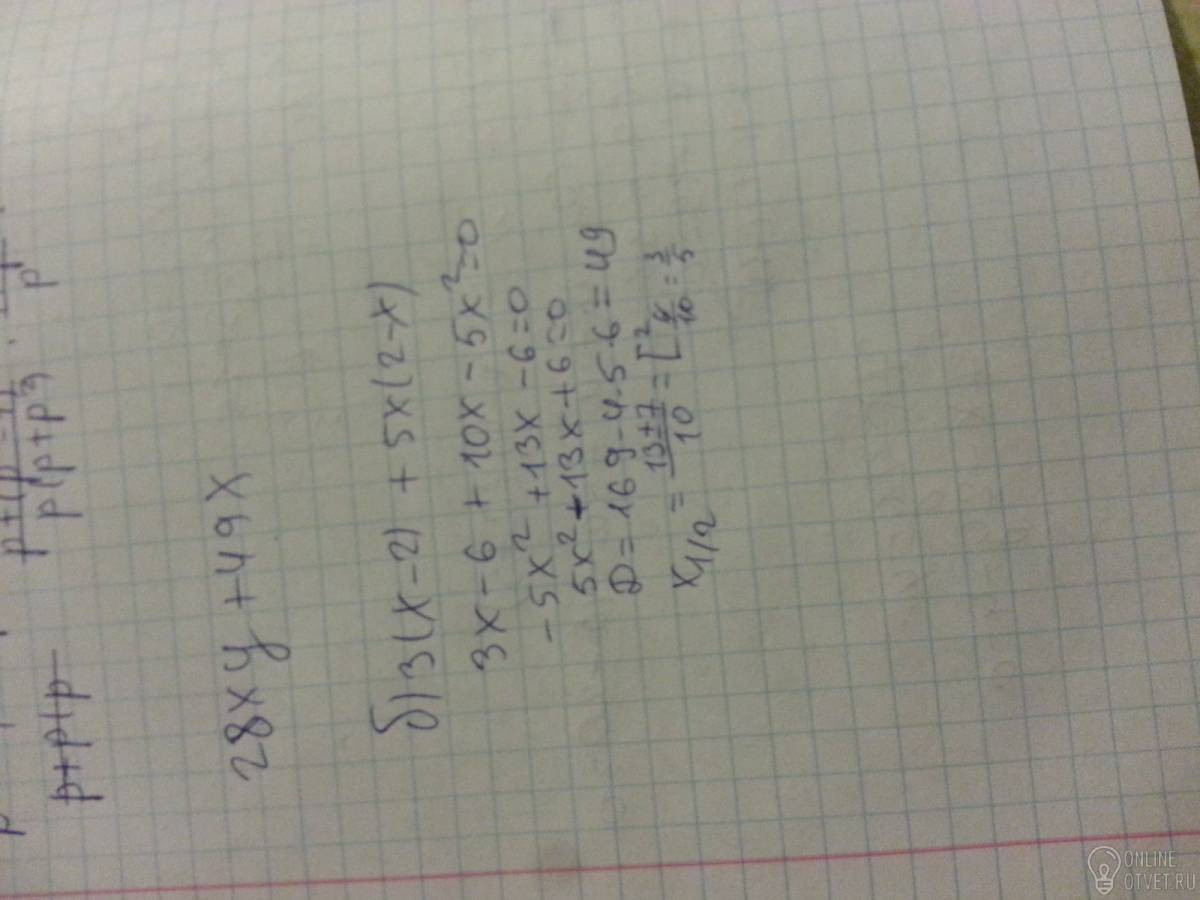 p+p(p
p+(p-1)
p(p+p²)
p
28xy+49x
б)3(x-2)+5x(2-x)
3x-6+10x-5x²=0
-5x²+13x-6=0
5x²-13x+6=0
D=169-4.5.6=49
x1/2=13±7/10=[2 6/10=3/5
ONLINE
OTVET.RU